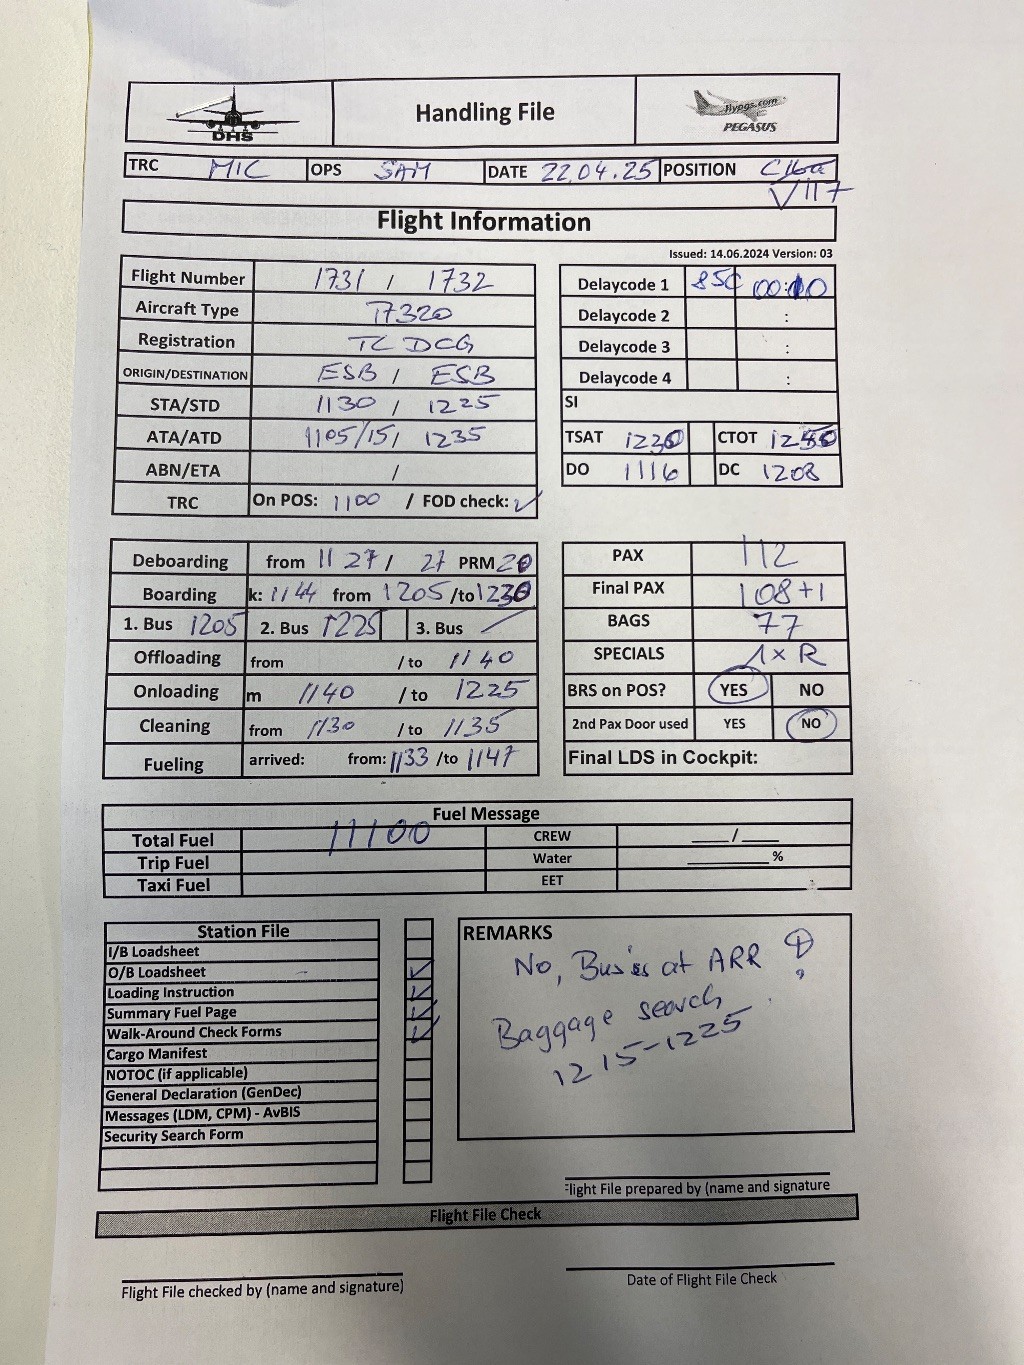 DHS
Handling File
flypgs.com
PEGASUS
TRC MIC OPS SAM DATE 22.04.25 POSITION
V117
Flight Information
Issued: 14.06.2024 Version: 03
Flight Number 1731 / 1732
Aircraft Type 7320
Registration TC DCG
ORIGIN/DESTINATION ESB / ESB
STA/STD 1130 / 1225
ATA/ATD 1105/15/ 1235
ABN/ETA /
TRC On POS: 1100 / FOD check: ✓
Delaycode 1 85C 00:10
Delaycode 2 :
Delaycode 3 :
Delaycode 4 :
SI
TSAT CTOT
DO 1116 DC 1208
Deboarding from 1127 / 27 PRM 20
Boarding k: 1144 from 1205 /to 1230
1. Bus 1205 2. Bus 1225 3. Bus
Offloading from / to 1140
Onloading m 1140 / to 1225
Cleaning from 1130 / to 1135
Fueling arrived: from: 1133 /to 1147
PAX 112
Final PAX 108+1
BAGS 77
SPECIALS 1x R
BRS on POS? YES NO
2nd Pax Door used YES NO
Final LDS in Cockpit:
Fuel Message
Total Fuel 11100 CREW ____/____
Trip Fuel Water ________%
Taxi Fuel EET
Station File
I/B Loadsheet
O/B Loadsheet ✓
Loading Instruction ✓
Summary Fuel Page ✓
Walk-Around Check Forms ✓
Cargo Manifest
NOTOC (if applicable)
General Declaration (GenDec)
Messages (LDM, CPM) - AvBIS
Security Search Form
REMARKS
No, Bus'es at ARR
Baggage search
1215-1225
Flight File prepared by (name and signature
Flight File Check
Flight File checked by (name and signature)
Date of Flight File Check